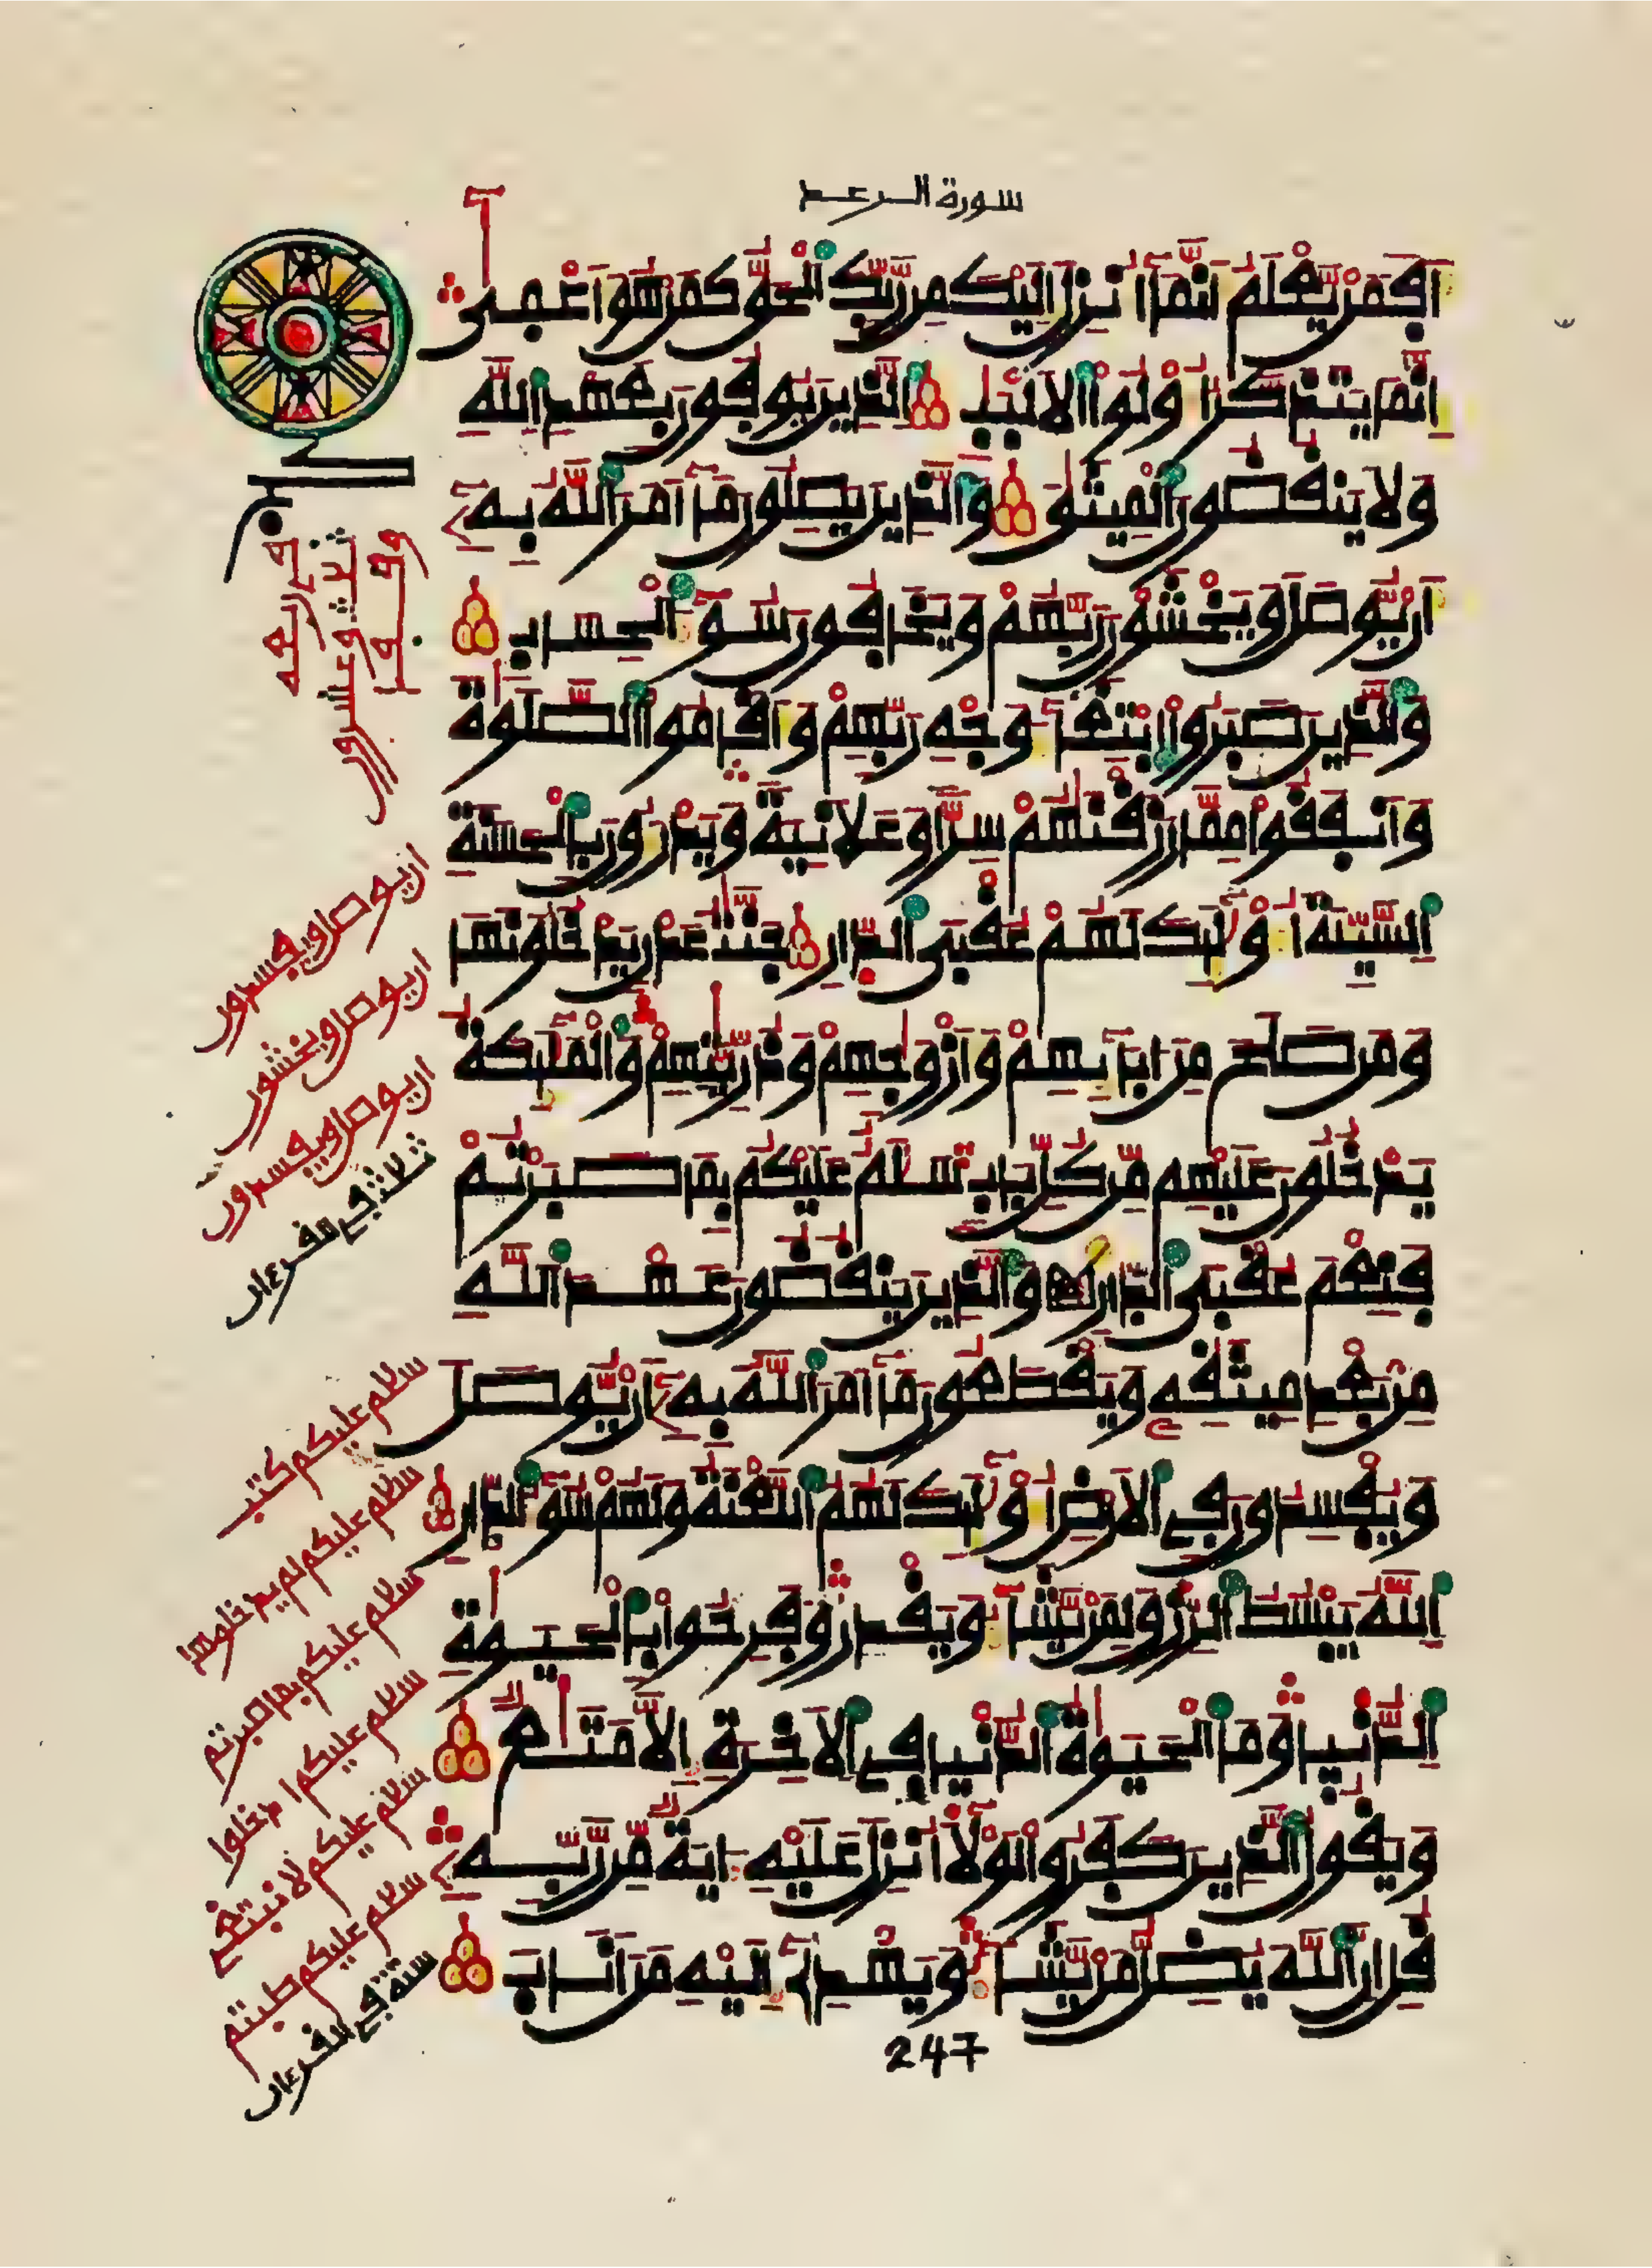 سورة الرعد
اَفَمَنْ يَّعْلَمُ أَنَّمَآ أُنزِلَ إِلَيْكَ مِن رَّبِّكَ اَ۬لْحَقُّ كَمَنْ هُوَ أَعْمَىٰٓ
إِنَّمَا يَتَذَكَّرُ أُوْلُواْ اُ۬لَالْبَٰبِ اِ۬لذِينَ يُوفُونَ بِعَهْدِ اِ۬للَّهِ
وَلَا يَنقُضُونَ اَ۬لْمِيثَٰقَ وَالذِينَ يَصِلُونَ مَآ أَمَرَ اَ۬للَّهُ بِهِۦٓ
أَنْ يُّوصَلَ وَيَخْشَوْنَ رَبَّهُمْ وَيَخَافُونَ سُوٓءَ اَ۬لْحِسَابِ
وَالذِينَ صَبَرُواْ اُ۪بْتِغَآءَ وَجْهِ رَبِّهِمْ وَأَقَامُواْ اُ۬لصَّلَوٰةَ
وَأَنفَقُواْ مِمَّا رَزَقْنَٰهُمْ سِرّاً وَعَلَانِيَةً وَيَدْرَءُونَ بِالْحَسَنَةِ
اِ۬لسَّيِّئَةَ أُوْلَٰٓئِكَ لَهُمْ عُقْبَى اَ۬لدّ۪ارِ جَنَّٰتُ عَدْنٍ يَدْخُلُونَهَا
وَمَن صَلَحَ مِنَ اٰبَآئِهِمْ وَأَزْوَٰجِهِمْ وَذُرِّيَّٰتِهِمْ وَالْمَلَٰٓئِكَةُ
يَدْخُلُونَ عَلَيْهِم مِّن كُلِّ بَابٍ سَلَٰمٌ عَلَيْكُم بِمَا صَبَرْتُمْ
فَنِعْمَ عُقْبَى اَ۬لدّ۪ارِ وَالذِينَ يَنقُضُونَ عَهْدَ اَ۬للَّهِ
مِنۢ بَعْدِ مِيثَٰقِهِۦ وَيَقْطَعُونَ مَآ أَمَرَ اَ۬للَّهُ بِهِۦٓ أَنْ يُّوصَلَ
وَيُفْسِدُونَ فِے اِ۬لَارْضِ أُوْلَٰٓئِكَ لَهُمُ اُ۬للَّعْنَةُ وَلَهُمْ سُوٓءُ اُ۬لدّ۪ارِ
اِ۬للَّهُ يَبْسُطُ اُ۬لرِّزْقَ لِمَنْ يَّشَآءُ وَيَقْدِرُ وَفَرِحُواْ بِالْحَيَوٰةِ
اِ۬لدُّنْيَا وَمَا اَ۬لْحَيَوٰةُ اُ۬لدُّنْيَا فِے اِ۬لَاخِرَةِ إِلَّا مَتَٰعٌ
وَيَقُولُ اُ۬لذِينَ كَفَرُواْ لَوْلَآ أُنزِلَ عَلَيْهِ ءَايَةٌ مِّن رَّبِّهِۦ
قُلِ اِنَّ اَ۬للَّهَ يُضِلُّ مَنْ يَّشَآءُ وَيَهْدِےٓ إِلَيْهِ مَنَ اَنَابَ
247
ان يوصل ويفسدون
ان يوصل ويخشون
ان يوصل ويفسدون
ثلاث في القرءان
سلام عليكم كتب
سلام عليكم لم يدخلوها
سلام عليكم بما صبرتم
سلام عليكم ادخلوا
سلام عليكم لا نبتغي
سلام عليكم طبتم
ستة في القرءان